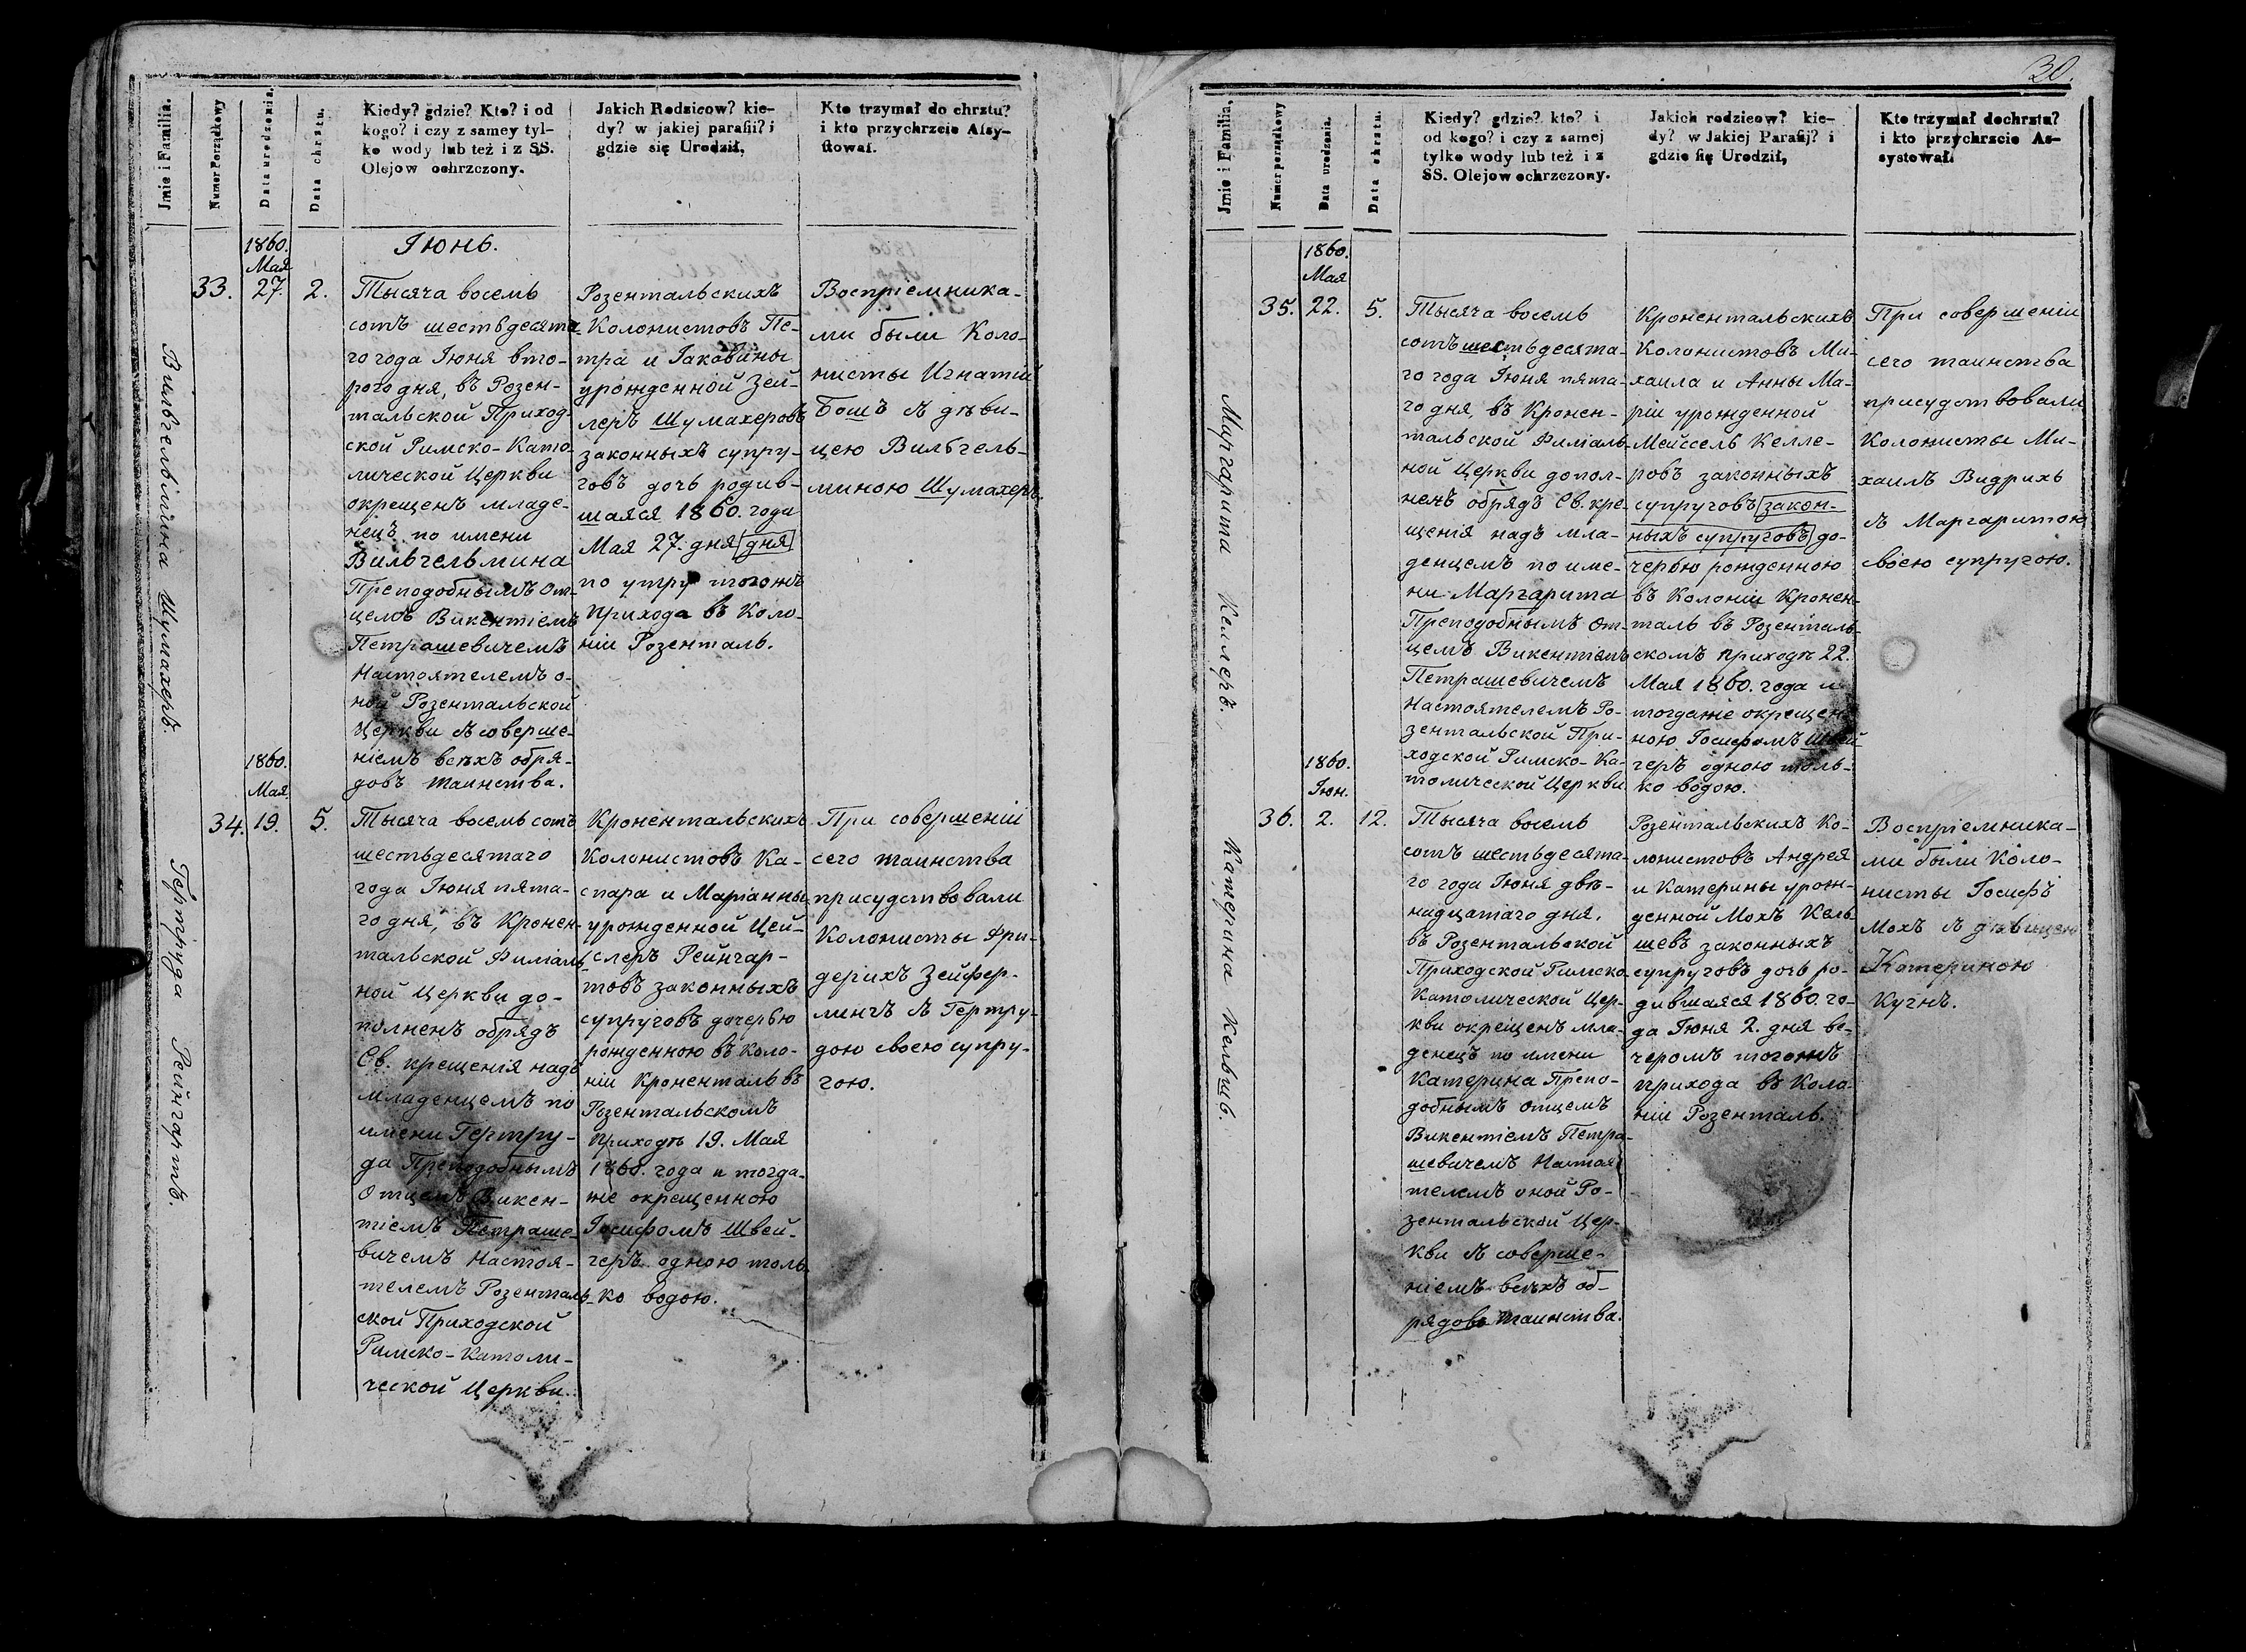 30.
Jmie i Familia.
Numer Porządkowy
Data urodzenia.
Data chrztu.
Kiedy? gdzie? Kto? i od
kogo? i czy z samey tyl-
ko wody lub też i z SS.
Olejow ochrzczony.
Jakich Rodzicow? kie-
dy? w jakiej parafii? i
gdzie się Urodził,
Kto trzymał do chrztu?
i kto przychrzcie Assy-
stował.
Вильгельмина Шумахеръ.
33.
1860.
Мая
27.
2.
Iюнь.
Тысяча восемь
сотъ шестьдесята-
го года Iюня вто-
рого дня, въ Розен-
тальской Приход-
ской Римско-Като-
лической Церкви
окрещенъ младе-
нецъ по имени
Вильгельмина
Преподобнымъ От-
цемъ Викентiемъ
Петрашевичемъ
Настоятелемъ о-
ной Розентальской
Церкви съ соверше-
нiемъ всѣхъ обря-
довъ таинства.
Розентальскихъ
Колонистовъ Пе-
тра и Iаковины
урожденной Зей-
леръ Шумахеровъ
законныхъ супру-
говъ дочь родив-
шаяся 1860. года
Мая 27. дня дня
по утру тогожъ
прихода въ Коло-
нiи Розенталь.
Воспрiемника-
ми были Коло-
нисты Игнатiй
Бошъ съ дѣви-
цею Вильгель-
миною Шумахеръ.
Рейнгартъ.
34.
1860.
Мая.
19.
5.
Тысяча восемь сотъ
шестьдесятаго
года Iюня пята-
го дня, въ Кронен-
тальской Филiаль-
ной Церкви до-
полненъ обрядъ
Св. крещенiя надъ
младенцемъ по
имени Гертру-
да Преподобнымъ
Отцемъ Викен-
тiемъ Петраше-
вичемъ Настоя-
телемъ Розенталь-
ской Приходской
Римско-Католи-
ческой Церкви.
Кронентальскихъ
Колонистовъ Ка-
спара и Марiанны
урожденной Цей-
слеръ Рейнгар-
товъ законныхъ
супруговъ дочерью
рожденною въ Коло-
нiи Кроненталь въ
Розентальскомъ
приходѣ 19. Мая
1860. года и тогда-
же окрещенною
Iосифомъ Швей-
геръ одною толь-
ко водою.
При совершенiи
сего таинства
присудствовали
Колонисты Фри-
дерихъ Зейфер-
лингъ съ Гертру-
дою своею супру-
гою.
Jmie i Familia,
Numer porządkowy
Data urodzenia.
Data chrztu.
Kiedy? gdzie? kto? i
od kogo? i czy z samej
tylko wody lub też i z
SS. Olejow ochrzczony.
Jakich rodzicow? kie-
dy? w Jakiej Parafij? i
gdzie się Urodził,
Kto trzymał dochrztu?
i kto przychrzcie As-
systował.
Маргарита Келлеръ.
35.
1860.
Мая
22.
5.
Тысяча восемь
сотъ шестьдесята-
го года Iюня пята-
го дня, въ Кронен-
тальской Филiаль-
ной Церкви допол-
ненъ обрядъ Св. кре-
щенiя надъ мла-
денцемъ по име-
ни Маргарита
Преподобнымъ От-
цемъ Викентiемъ
Петрашевичемъ
Настоятелемъ Ро-
зентальской При-
ходской Римско-Ка-
толической Церкви
Кронентальскихъ
Колонистовъ Ми-
хаила и Анны Ма-
рiи урожденной
Мейссель Келле-
ровъ законныхъ
супруговъ закон-
ныхъ супруговъ до-
черью рожденною
въ Колонiи Кронен-
таль въ Розенталь-
скомъ приходѣ 22.
Мая 1860. года и
тогдаже окрещен-
ною Iосифомъ Швей-
геръ одною толь-
ко водою.
При совершенiи
сего таинства
присудствовали
Колонисты Ми-
хаилъ Видрихъ
съ Маргаритою
своею супругою.
Катерина Кельшъ.
36.
1860.
Iюн.
2.
12.
Тысяча восемь
сотъ шестьдесята-
го года Iюня двѣ-
надцатаго дня,
въ Розентальской
Приходской Римско-
Католической Цер-
кви окрещенъ мла-
денецъ по имени
Катерина Препо-
добнымъ отцемъ
Викентiемъ Петра-
шевичемъ Настоя-
телемъ оной Ро-
зентальской Цер-
кви съ соверше-
нiемъ всѣхъ об-
рядовъ таинства.
Розентальскихъ Ко-
лонистовъ Андрея
и Катерины урож-
денной Мохъ Кель-
шевъ законныхъ
супруговъ дочь ро-
дившаяся 1860. го-
да Iюня 2. дня ве-
черомъ тогожъ
прихода въ Коло-
нiи Розенталь.
Воспрiемника-
ми были Коло-
нисты Iосифъ
Мохъ съ дѣвицею
Катериною
Кугнъ.